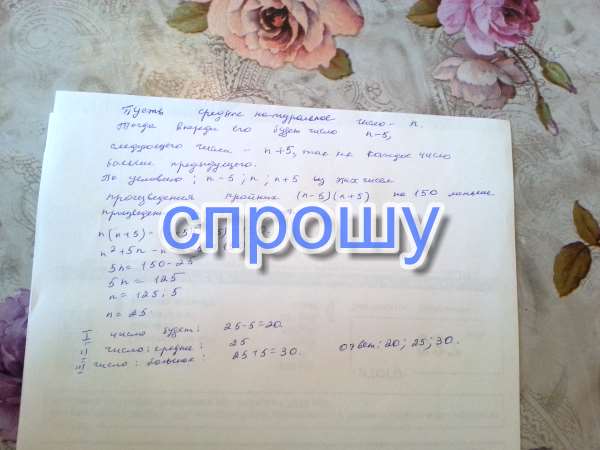 Пусть среднее натуральное число - n.
Тогда впереди его будет число n-5,
следующего числа - n+5, так как каждое число
больше предыдущего.
По условию ; n-5 ; n ; n+5 из этих чисел
произведения крайних (n-5)(n+5) на 150 меньше
n(n+5) -
n²+5n - n
спрошу
5n = 150-25
5n = 125
n = 125 : 5
n = 25
I число будет: 25-5=20.
II число: среднее: 25
III число: большое: 25+5=30. Ответ: 20; 25; 30.